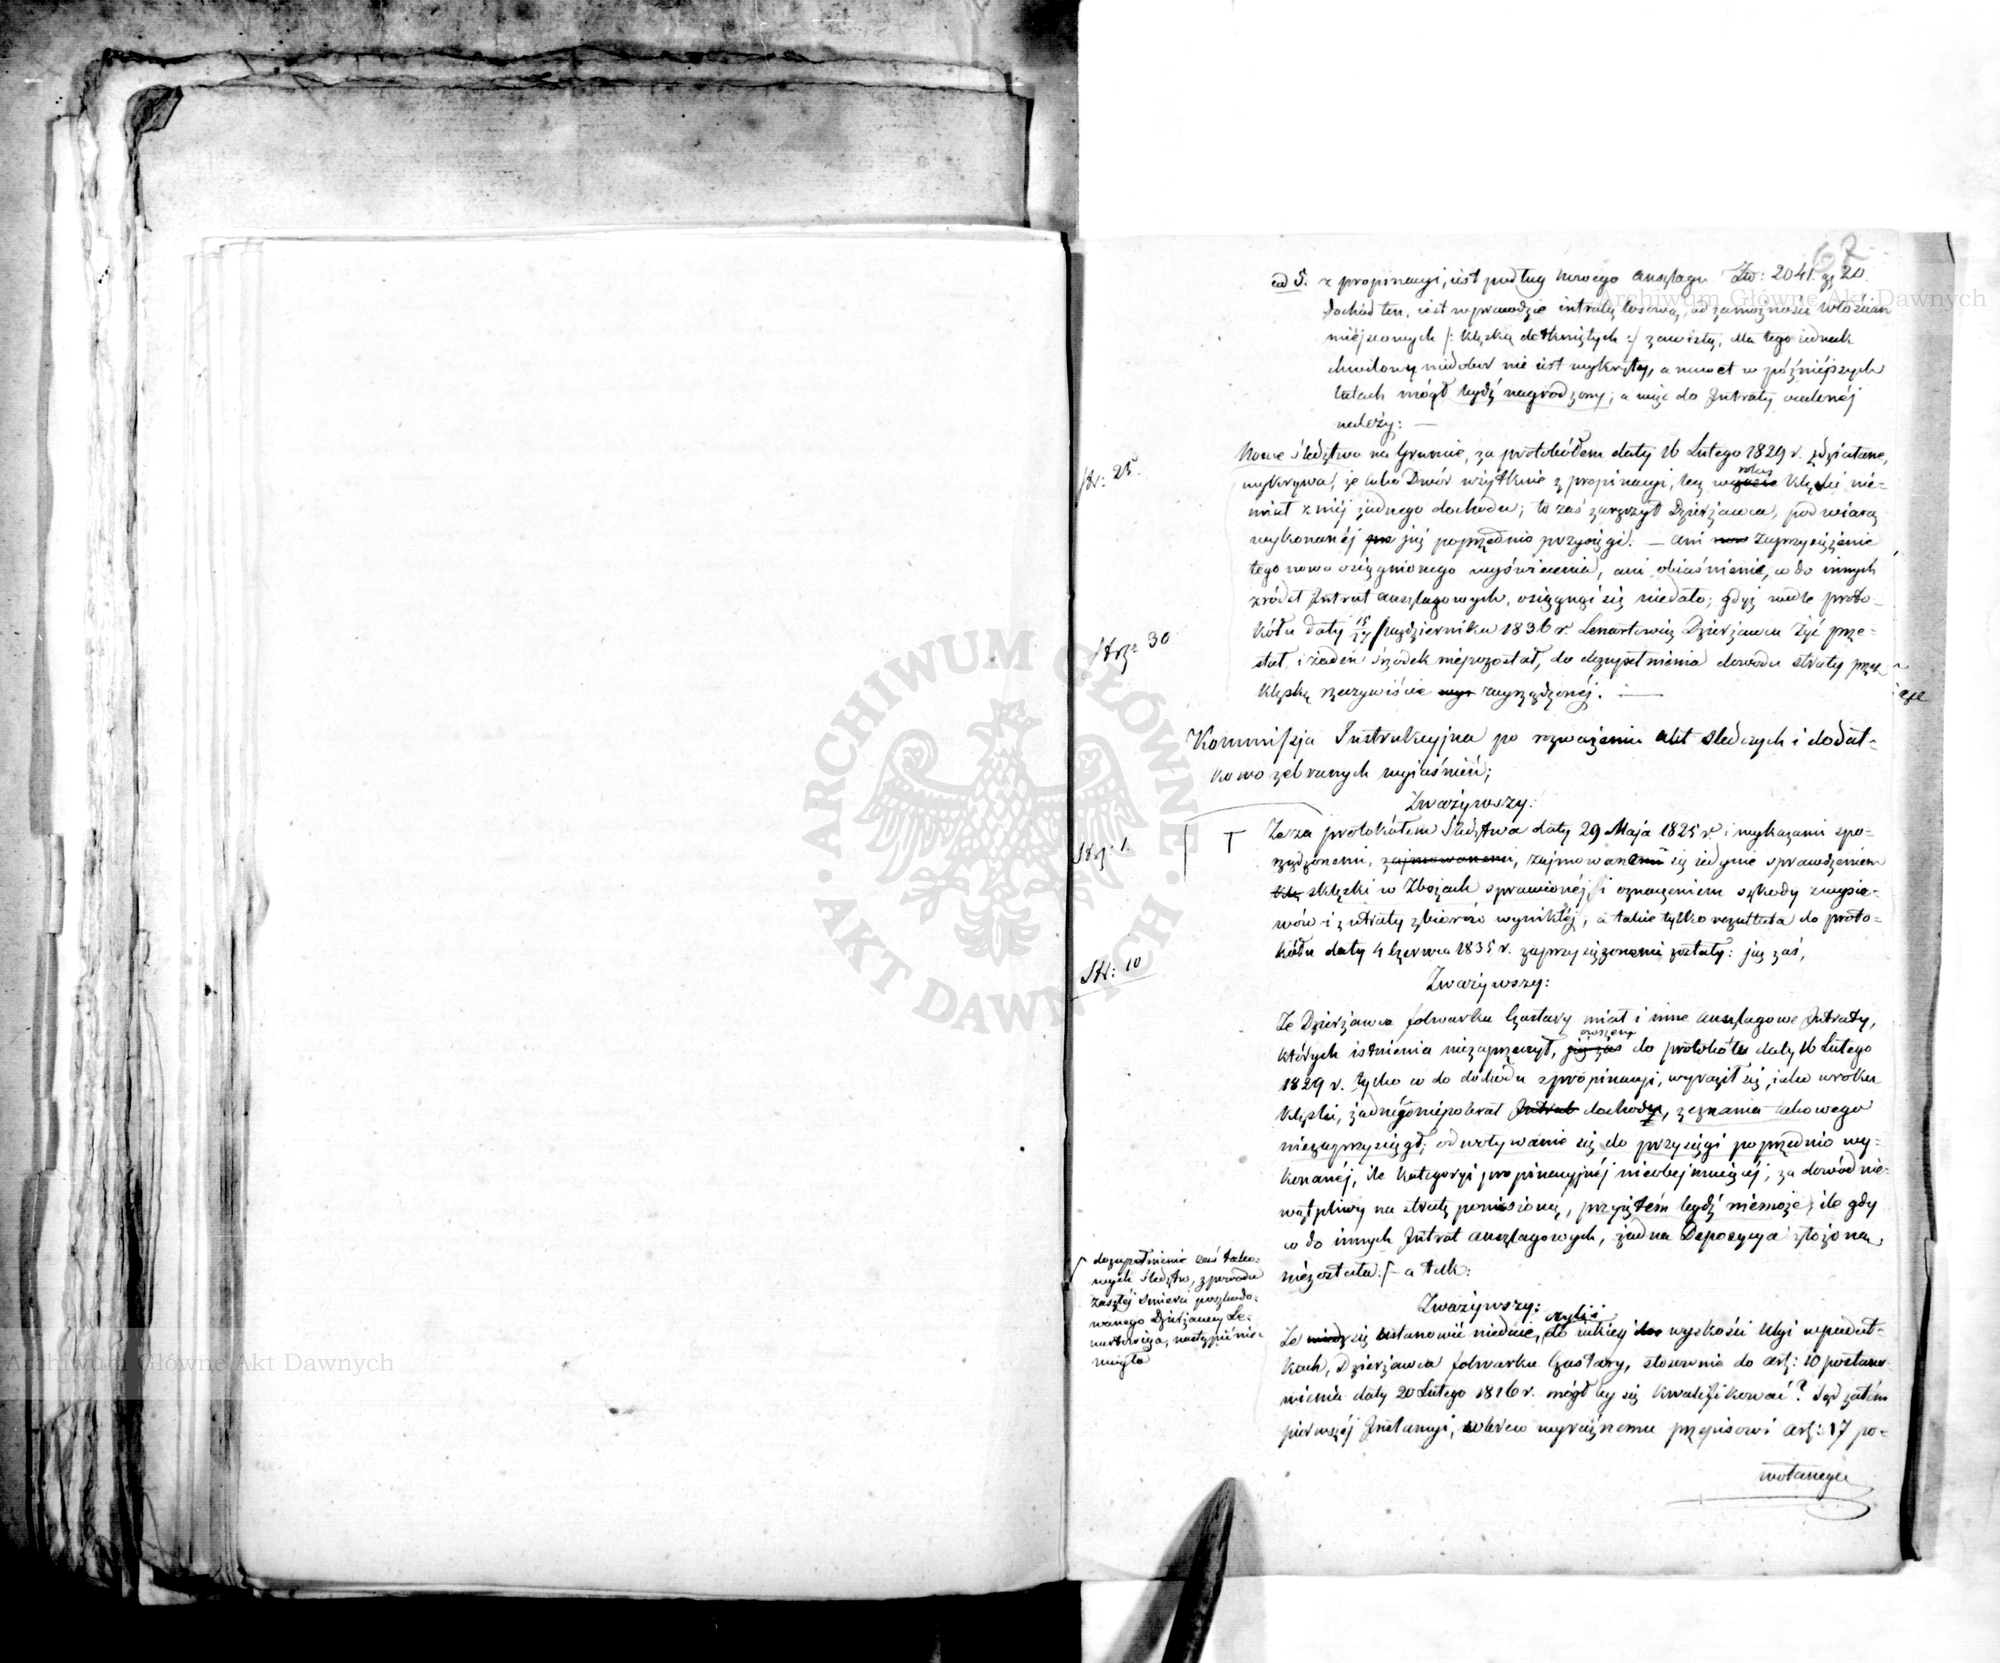 67
ad 5. z propinacyi, iest podług nowego anszlagu Złt: 2041. gr 20.
Dochód ten, iest wprawdzie intratą losową, od zamożności Włościan
miejscowych /: klęską dotkniętych :/ zawisłą; dla tego iednak
chwilowy niedobór nie iest wykryty, a nawet w późniéjszych
latach mógł bydź nagrodzony; a więc do Intraty ocelonéj
należy: —
Nowe śledztwo na Gruncie, za protokółem daty 16 Lutego 1829 r. zdziałane,
Str: 25.
wykrywa, że lubo Dwór użytkuie z propinacyi, lecz roku klęski nie-
miał z niéj żadnego dochodu; to zaś zaręczył Dzierżawca, pod wiarą
wykonanéj już poprzednio przysięgi. — ani zaprzysiężenie
tego nowo osiągnionego wyświecenia, ani obiaśnienie, co do innych
źródeł Intrat anszlagowych, osiągnąć się niedało; gdyż wedle proto-
kółu daty 15/27 Października 1836 r. Lenartowicz Dzierżawca żyć prze-
Str: 30
stał, i żaden środek niepozostał, do dozupełnienia dowodu straty przez
klęskę rzeczywiście zrządzonéj. —
Kommissja Instrukcyjna po rozważeniu akt śledczych i dodat-
kowo zebranych wyiaśnień;
Zważywszy:
Że za protokółem śledztwa daty 29 Maja 1825 r. i wykazami spo-
Str: 1.
rządzonemi, zajmowanemi, zajmowano się iedynie sprawdzeniem
klę sklęski w Zbożach sprawionéj, i oznaczeniem szkody z wysie-
wów i z utraty zbiorów wynikłéj, a takie tylko rezultata do proto-
kółu daty 4 Czerwca 1835 r. zaprzysiężonemi zostały: już zaś,
Str: 10
Zważywszy:
Że Dzierżawca folwarku Czastary miał i inne anszlagowe Intraty,
których istnienia niezaprzeczył, już zaś do protokołu daty 16 Lutego
1829 r. tylko co do dochodu z propinacyi, wyraził się, iako w roku
klęski, żadnégo niepobrał Intrat dochodu, zeznania takowego
niezaprzysiągł; odwoływanie się do przysięgi poprzednio wy-
konanéj, ile kategoryi propinacyjnéj nieobejmuiącéj, za dowód nie-
wątpliwy na stratę poniesioną, przyiętém bydź niemoże; ile gdy
co do innych Intrat anszlagowych, żadna Depozycya złożoną
niezostała: — a tak:
dozupełnienie zaś tako-
wych śledztw, z powodu
zaszłéj śmierci poszkodo-
wanego Dzierżawcy Le-
nartowicza, nastąpić nie-
mogło
Zważywszy:
Że się ustanowić niedaie, czyli i do iakiéj wysokości Ulgi w podat-
kach, Dzierżawca folwarku Czastary, stosownie do art: 10 postano-
wienia daty 20 Lutego 1816 r. mógł by się kwalifikować? Sąd zatém
pierwszéj Instancyi, wbrew wyraźnemu przepisowi art: 17 po-
wołanego
ARCHIWUM GŁÓWNE AKT DAWNYCH
Archiwum Główne Akt Dawnych
Archiwum Główne Akt Dawnych